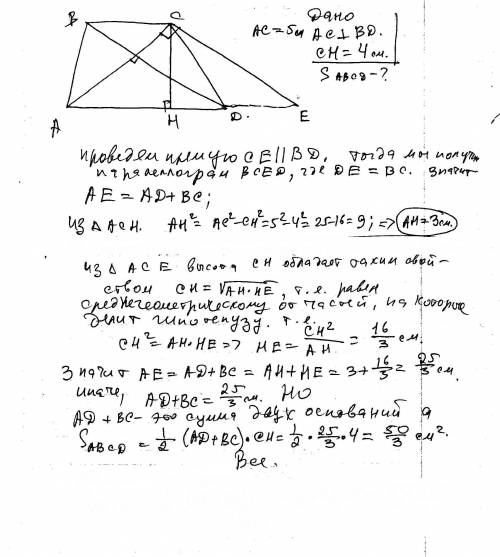 Дано
AC = 5см AC ⊥ BD.
CH = 4 см.
S ABCD - ?
B C
A H D. E
проведем прямую CE || BD. тогда мы получим
параллелограм BCED, где DE = BC. значит
AE = AD + BC;
из △ ACH. AH² = AC² - CH² = 5² - 4² = 25 - 16 = 9; => AH = 3 см.
из △ ACE высота CH обладает таким свой-
ством CH = √AH·HE, т.е. равен
среднегеометрическому от частей, на которые
делит гипотенузу. т.е.
CH² = AH·HE => HE = CH²/AH = 16/3 см.
Значит AE = AD + BC = AH + HE = 3 + 16/3 = 25/3 см.
иначе, AD + BC = 25/3 см. Но
AD + BC - это сумма двух оснований а
S ABCD = 1/2 · (AD + BC) · CH = 1/2 · 25/3 · 4 = 50/3 см².
Все.